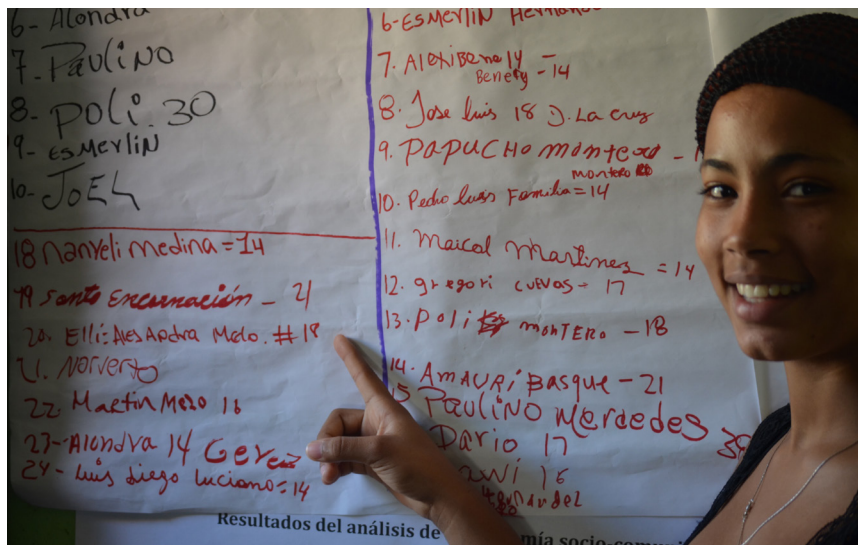 6- Alondra
7- Paulino
8- Poli 30
9- ESMErlIN
10- JOEL
18 nanyeli medina = 14
19 santo Encarnación - 21
20. Elli: AlesAndra Melo. # 18
21. Norverto
22 Martin Mezo 16
23- Alondra 14 Gerez
24- Luis Diego Luciano = 14
6- ESMErlIN
7. Alexibene 14 -
Benery - 14
8. Jose luis 18 D. La cruz
9. PAPUCHO montero -
montero
10. Pedro Luis Familia = 14
11. Maicol Martinez = 14
12. gregori cuevas - 17
13. Poli monTERO - 18
14. AMAURI Basque - 21
15 PAULINO Mercedes 39
Dario 17
16
Resultados del análisis de
mía socio-comuni